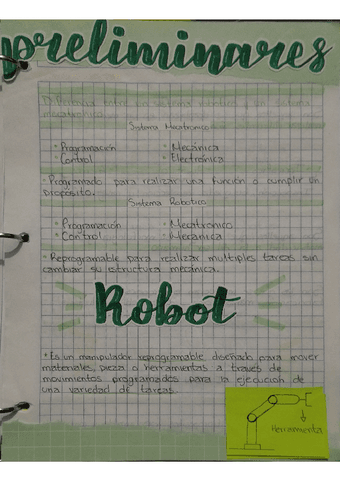 preliminares
Diferencia entre un sistema robótico y un sistema
mecatrónico.
Sistema Mecatronico
• Programación • Mecánica
• Control • Electrónica
• Programado para realizar una función o cumplir un
propósito.
Sistema Robotico
• Programación • Mecatronico
• Control • Mecanica
• Reprogramable para realizar multiples tareas sin
cambiar su estructura mecánica.
Robot
• Es un manipulador reprogramable diseñado para mover
materiales, pieza o herramientas a través de
movimientos programados para la ejecución de
una variedad de tareas.
Herramienta